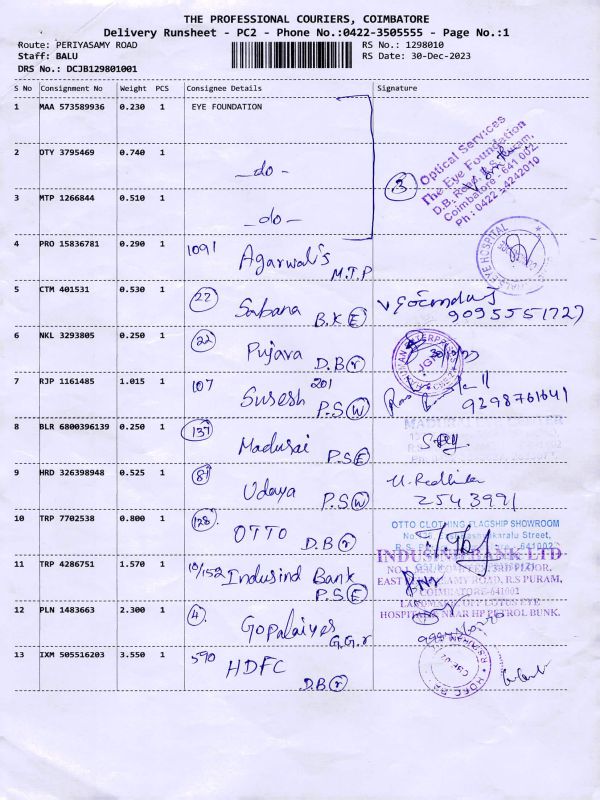 THE PROFESSIONAL COURIERS, COIMBATORE
Delivery Runsheet - PC2 - Phone No.:0422-3505555 - Page No.:1
Route: PERIYASAMY ROAD
RS No.: 1298010
Staff: BALU
RS Date: 30-Dec-2023
DRS No.: DCJB129801001
S No Consignment No Weight PCS Consignee Details Signature
1 MAA 573589936 0.230 1 EYE FOUNDATION
2 OTY 3795469 0.740 1 -do-
3 MTP 1266844 0.510 1 -do-
3
Optical Services
The Eye Foundation
D.B. Road, R.S. Puram,
Coimbatore - 641 002
Ph : 0422 - 4242010
4 PRO 15836781 0.290 1 1091 Agarwal's M.T.P
EYE HOSPITAL
5 CTM 401531 0.530 1 22 Sabana B.K E
9095551727
6 NKL 3293805 0.250 1 22 Pujara D.B r
30/12/23
7 RJP 1161485 1.015 1 107 Suresh 201 P.S W
9298761641
8 BLR 6800396139 0.250 1 137 Madurai P.S E
9 HRD 326398948 0.525 1 87 Udaya P.S W
2543991
10 TRP 7702538 0.800 1 128 OTTO D.B r
OTTO CLOTHING FLAGSHIP SHOWROOM
11 TRP 4286751 1.570 1 10/152 Indusind Bank P.S E
INDUSIND BANK LTD
COIMBATORE-641001
LAKSHMANA OFF LOTUS EYE
HOSPITAL NEAR HP PETROL BUNK.
12 PLN 1483663 2.300 1 4 Gopalaiyer G.G.r
13 IXM 505516203 3.550 1 590 HDFC D.B r
HDFC BA